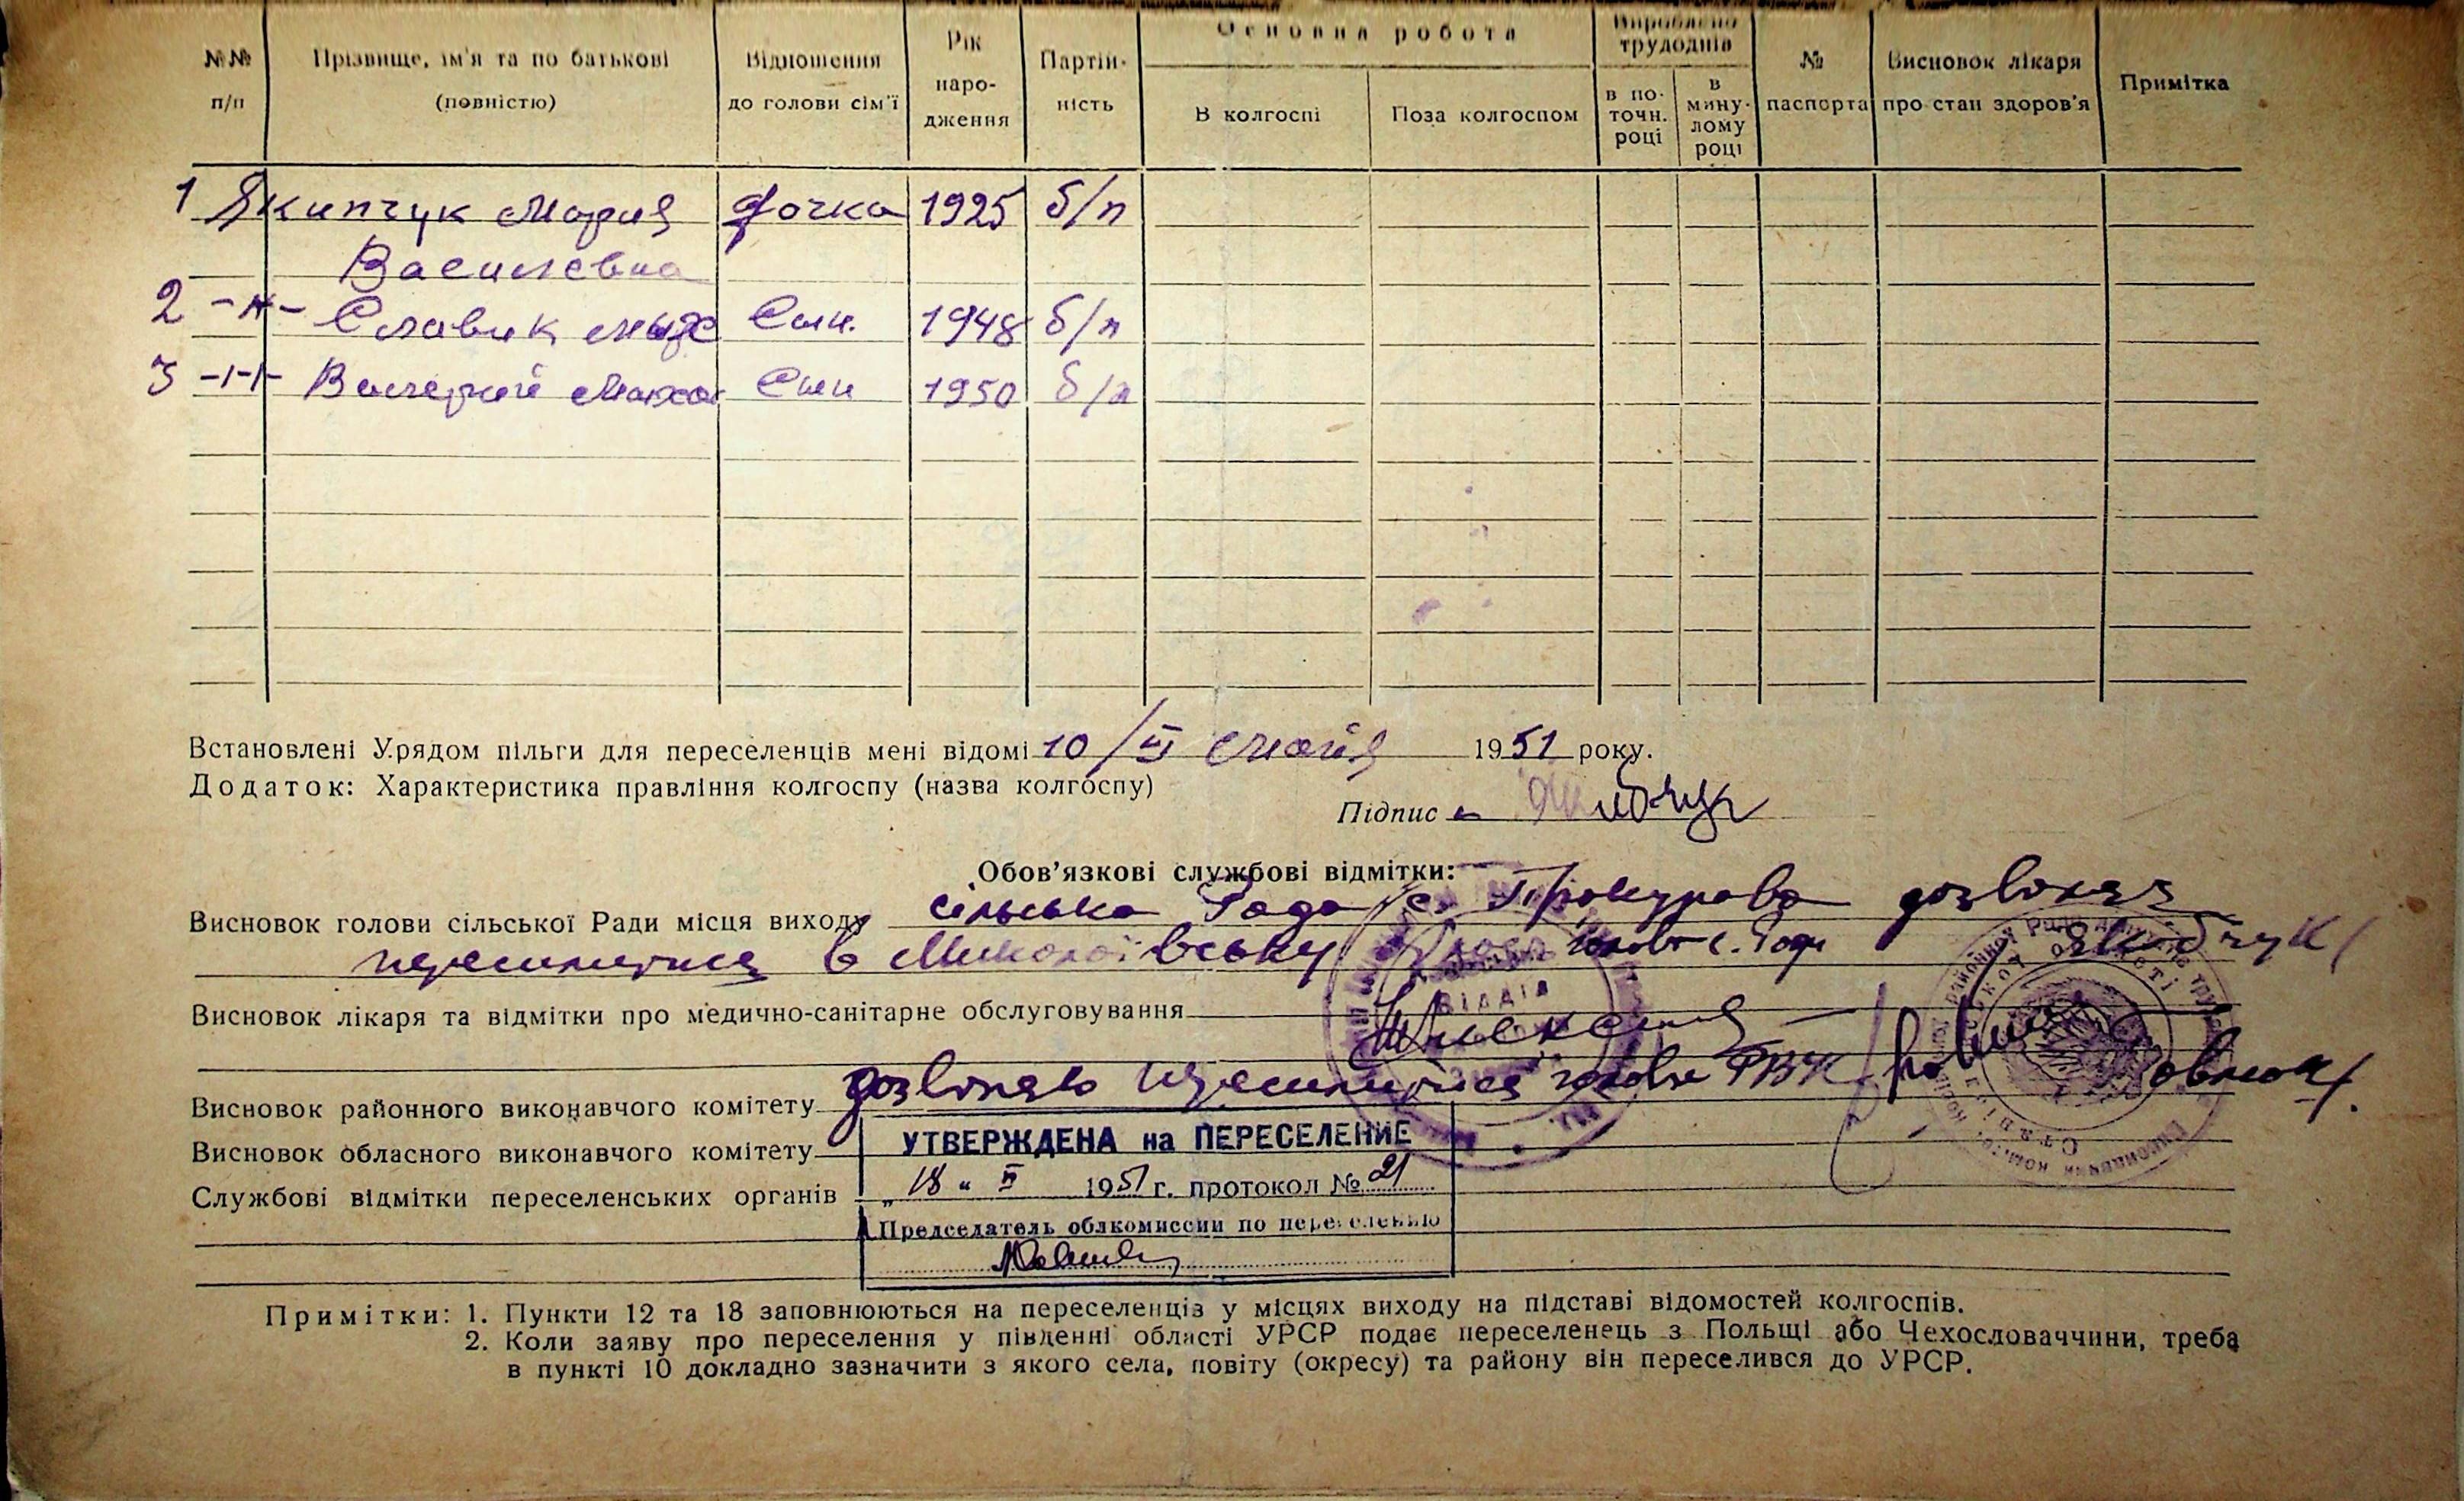 №№ п/п
Прізвище, ім'я та по батькові (повністю)
Відношення до голови сім'ї
Рік наро- дження
Партій- ність
Основна робота
В колгоспі
Поза колгоспом
Вироблено трудоднів
в по- точн. році
в мину- лому році
№ паспорта
Висновок лікаря про стан здоров'я
Примітка
1 Якипчук Мария дочка 1925 б/п
Василевна
2 -н- Славик Син. 1948 б/п
3 -н- Валерий Син 1950 б/п
Встановлені Урядом пільги для переселенців мені відомі 10/ мая 1951 року.
Додаток: Характеристика правління колгоспу (назва колгоспу)
Підпис
Обов'язкові службові відмітки:
Висновок голови сільської Ради місця виходу сільська Рада с. Прокурава дозволяє
переселитися в Миколаївську голова с. Ради
Висновок лікаря та відмітки про медично-санітарне обслуговування
Висновок районного виконавчого комітету дозволяю переселитися голова РВК
Висновок обласного виконавчого комітету
УТВЕРЖДЕНА на ПЕРЕСЕЛЕНИЕ
Службові відмітки переселенських органів
„18" 1951 г. протокол № 21
Председатель облкомиссии по переселению
Примітки: 1. Пункти 12 та 18 заповнюються на переселенців у місцях виходу на підставі відомостей колгоспів.
2. Коли заяву про переселення у південні області УРСР подає переселенець з Польщі або Чехословаччини, треба
в пункті 10 докладно зазначити з якого села, повіту (окресу) та району він переселився до УРСР.